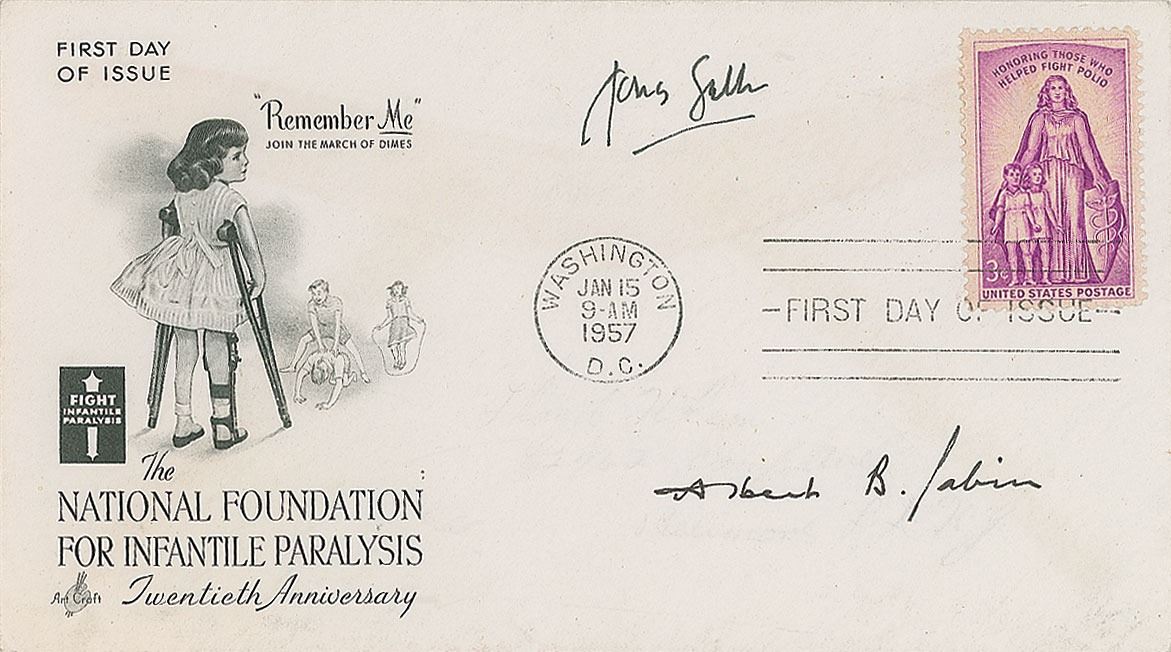 FIRST DAY
OF ISSUE
"Remember Me"
JOIN THE MARCH OF DIMES
Jonas Salk
HONORING THOSE WHO
HELPED FIGHT POLIO
3¢
UNITED STATES POSTAGE
WASHINGTON
JAN 15
9-AM
1957
D.C.
FIRST DAY OF ISSUE
FIGHT
INFANTILE
PARALYSIS
The
NATIONAL FOUNDATION
FOR INFANTILE PARALYSIS
Twentieth Anniversary
Art Craft
Albert B. Sabin